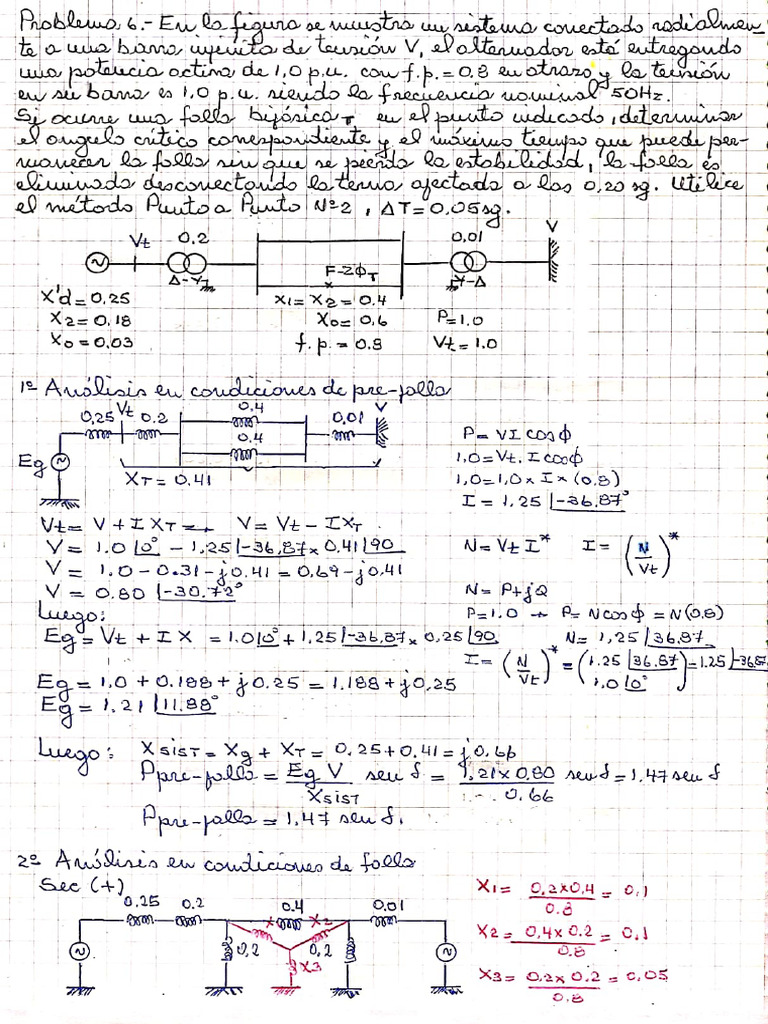 Problema 6.- En la figura se muestra un sistema conectado radialmen-
te a una barra infinita de tensión V, el alternador está entregando
una potencia activa de 1,0 p.u. con f.p. = 0.8 en atrazo y la tensión
en su barra es 1,0 p.u. siendo la frecuencia nominal 50Hz.
Si ocurre una falla bifásica T en el punto indicado, determinar
el angulo crítico correspondiente y el máximo tiempo que puede per-
manecer la falla sin que se pierda la estabilidad, la falla es
eliminada desconectando la terna afectada a los 0,20 sg. Utilice
el método Punto a Punto Nº2, ΔT = 0,05 sg.
Vt 0.2 0.01 V
F-2ϕT
Δ-Y Y-Δ
X'd = 0.25 X1 = X2 = 0.4
X2 = 0.18 X0 = 0,6 P = 1.0
X0 = 0.03 f.p. = 0.8 Vt = 1.0
1º Análisis en condiciones de pre-falla
0,25 Vt 0.2 0.4 0,01 V
0.4
Eg
XT = 0.41
P = VI cosϕ
1,0 = Vt. I cosϕ
1,0 = 1,0 x I x (0,8)
I = 1,25 |-36,87°
Vt = V + I XT → V = Vt - I XT
V = 1.0 |0° - 1,25 |-36,87 x 0,41 |90
V = 1.0 - 0.31 - j0.41 = 0,69 - j0,41
V = 0.80 |-30.72°
N = Vt I* I = (N/Vt)*
N = P + jQ
P = 1.0 → P = N cosϕ = N(0.8)
N = 1,25 |36,87
I = (N/Vt)* = (1.25 |36.87 / 1,0 |0°)* = 1.25 |-36,87
Luego:
Eg = Vt + I X = 1.0 |0° + 1,25 |-36,87 x 0,25 |90
Eg = 1,0 + 0.188 + j0.25 = 1.188 + j0,25
Eg = 1,21 |11.88°
Luego: XsisT = Xg + XT = 0.25 + 0.41 = j0.66
Ppre-falla = Eg V / XsisT sen δ = 1,21 x 0,80 / 0.66 sen δ = 1.47 sen δ
Ppre-falla = 1,47 sen δ.
2º Análisis en condiciones de falla
Sec (+)
0.25 0.2 0.4 0.01
X2
0,2 0.2
X3
X1 = 0.2 x 0.4 / 0.8 = 0.1
X2 = 0,4 x 0.2 / 0.8 = 0.1
X3 = 0.2 x 0.2 / 0.8 = 0,05